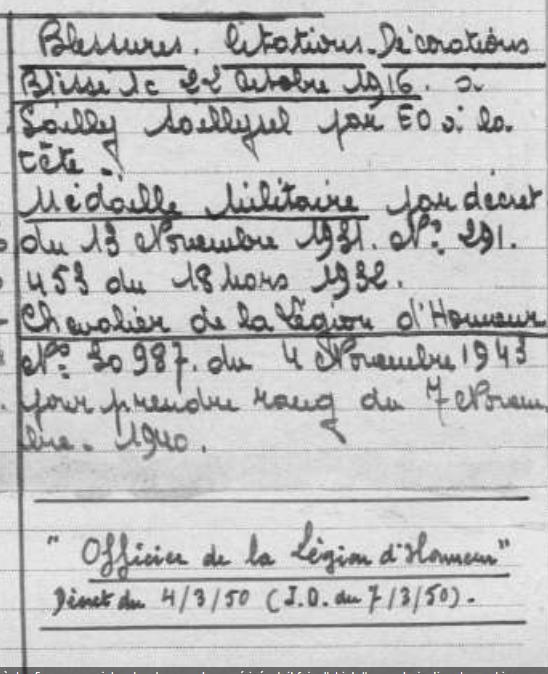 Blessures. Citations. Décorations
Blessé le 22 Octobre 1916. à
Sailly Saillysel par EO à la
tête.
Médaille Militaire par décret
du 13 Novembre 1931. N° 291.
453 du 18 Mars 1932.
Chevalier de la Légion d'Honneur
N° 30987. du 4 Novembre 1943
pour prendre rang du 7 Novem
bre. 1940.
"Officier de la Légion d'Honneur"
Décret du 4/3/50 (J.O. du 7/3/50).